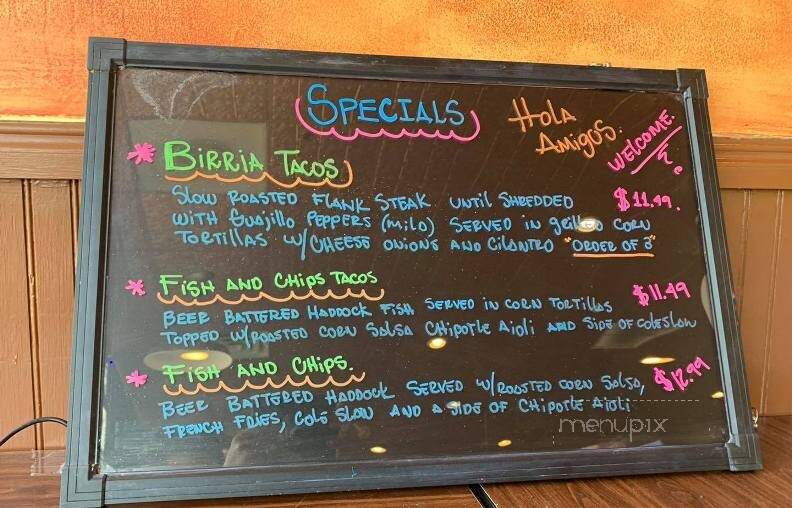 SPECIALS
HOLA AMIGOS.
WELCOME.
BIRRIA TACOS
SLOW ROASTED FLANK STEAK UNTIL SHREDDED $11.49.
WITH GUAJILLO PEPPERS (MILD) SERVED IN GRILLED CORN
TORTILLAS W/CHEESE ONIONS AND CILANTRO "ORDER OF 3"
FISH AND CHIPS TACOS $11.49
BEER BATTERED HADDOCK FISH SERVED IN CORN TORTILLAS
TOPPED W/ROASTED CORN SALSA CHIPOTLE AIOLI AND SIDE OF COLESLAW
FISH AND CHIPS. $12.99
BEER BATTERED HADDOCK SERVED W/ROASTED CORN SALSA,
FRENCH FRIES, COLE SLAW AND A SIDE OF CHIPOTLE AIOLI
menupix